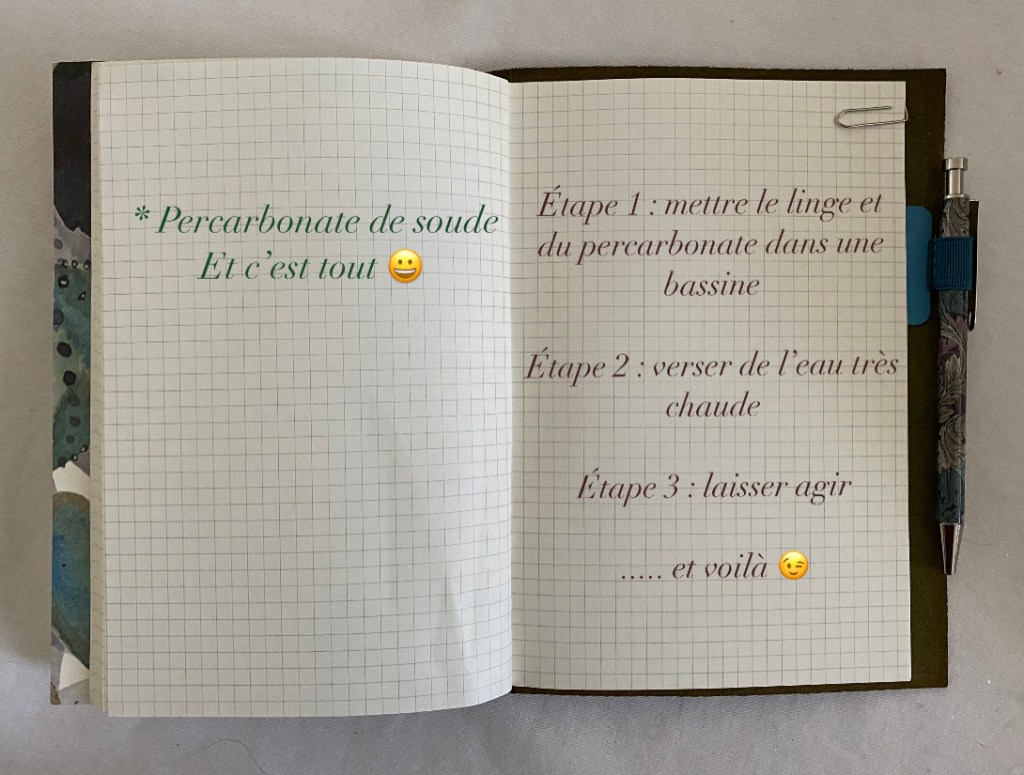 * Percarbonate de soude
Et c’est tout 😀
Étape 1 : mettre le linge et
du percarbonate dans une
bassine
Étape 2 : verser de l’eau très
chaude
Étape 3 : laisser agir
..... et voilà 😉